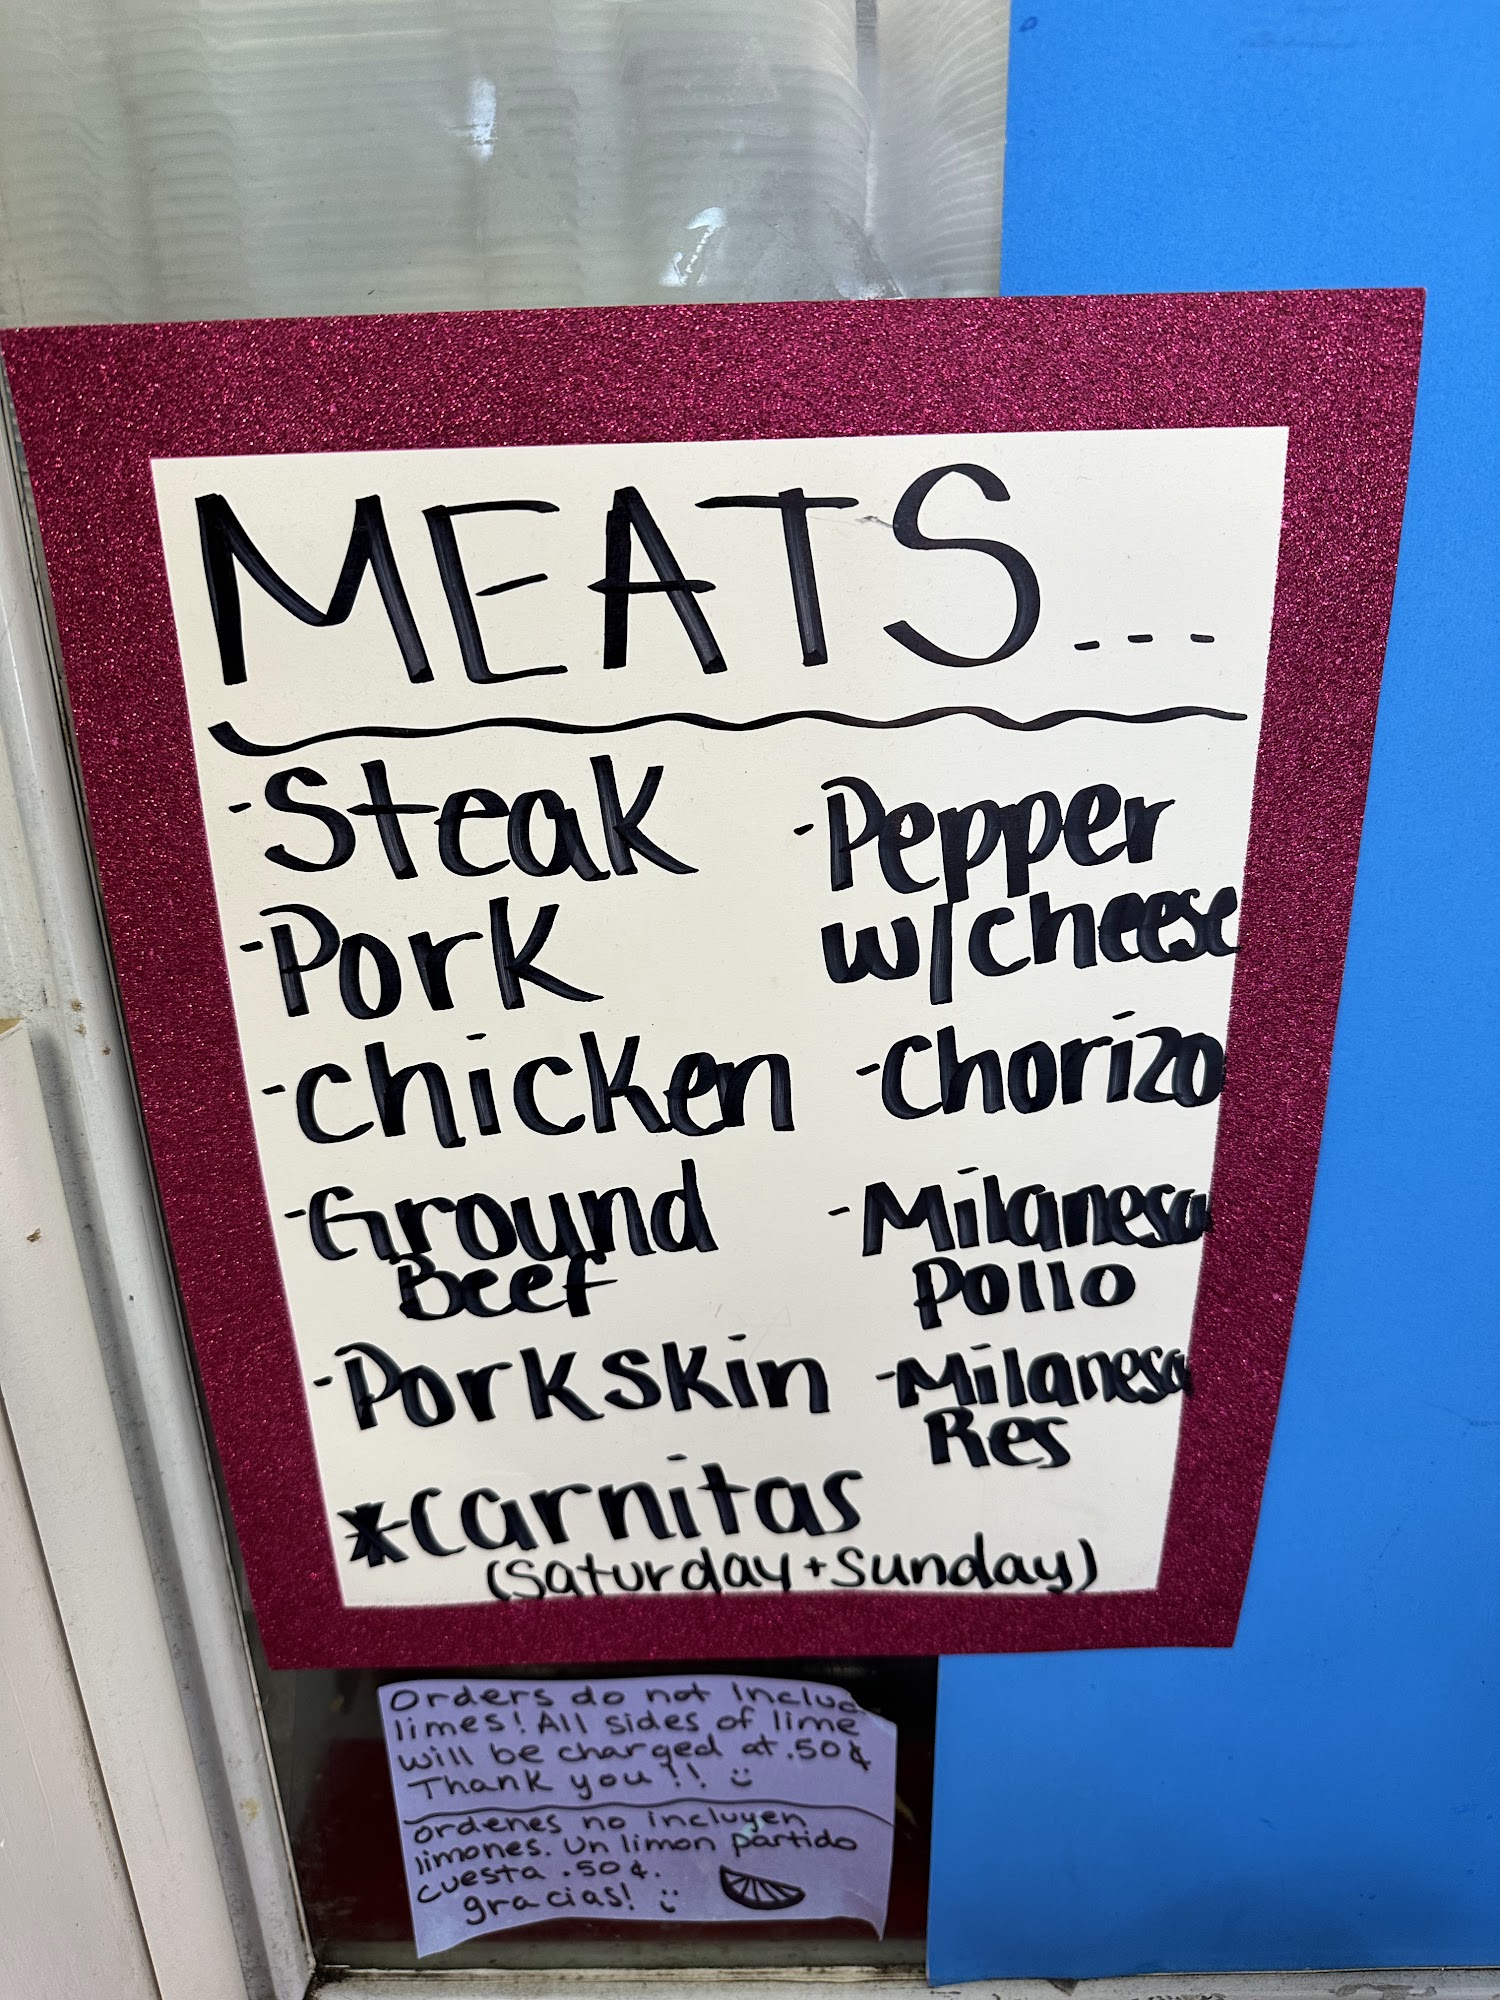 MEATS...
-Steak
-Pork
-Chicken
-Ground
Beef
-Porkskin
*Carnitas
(Saturday + Sunday)
-Pepper
w/cheese
-Chorizo
-Milanesa
Pollo
-Milanesa
Res
Orders do not includ
limes! All sides of lime
will be charged at .50¢
Thank you!! :)
Ordenes no incluyen
limones. Un limon partido
cuesta .50¢.
gracias! :)